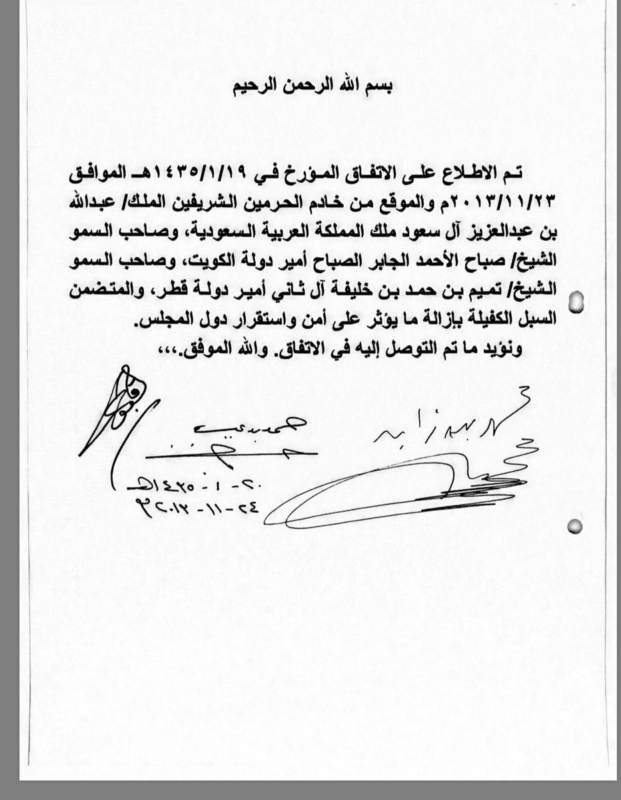 بسم الله الرحمن الرحيم
تم الاطلاع على الاتفاق المؤرخ في ١٤٣٥/١/١٩هـ الموافق
٢٠١٣/١١/٢٣م والموقع من خادم الحرمين الشريفين الملك/ عبدالله
بن عبدالعزيز آل سعود ملك المملكة العربية السعودية، وصاحب السمو
الشيخ/ صباح الأحمد الجابر الصباح أمير دولة الكويت، وصاحب السمو
الشيخ/ تميم بن حمد بن خليفة آل ثاني أمير دولة قطر، والمتضمن
السبل الكفيلة بإزالة ما يؤثر على أمن واستقرار دول المجلس.
ونؤيد ما تم التوصل إليه في الاتفاق. والله الموفق.،،،
محمد بن زايد
حمد بن عيسى
٢٠-١-١٤٣٥هـ
٢٤-١١-٢٠١٣م